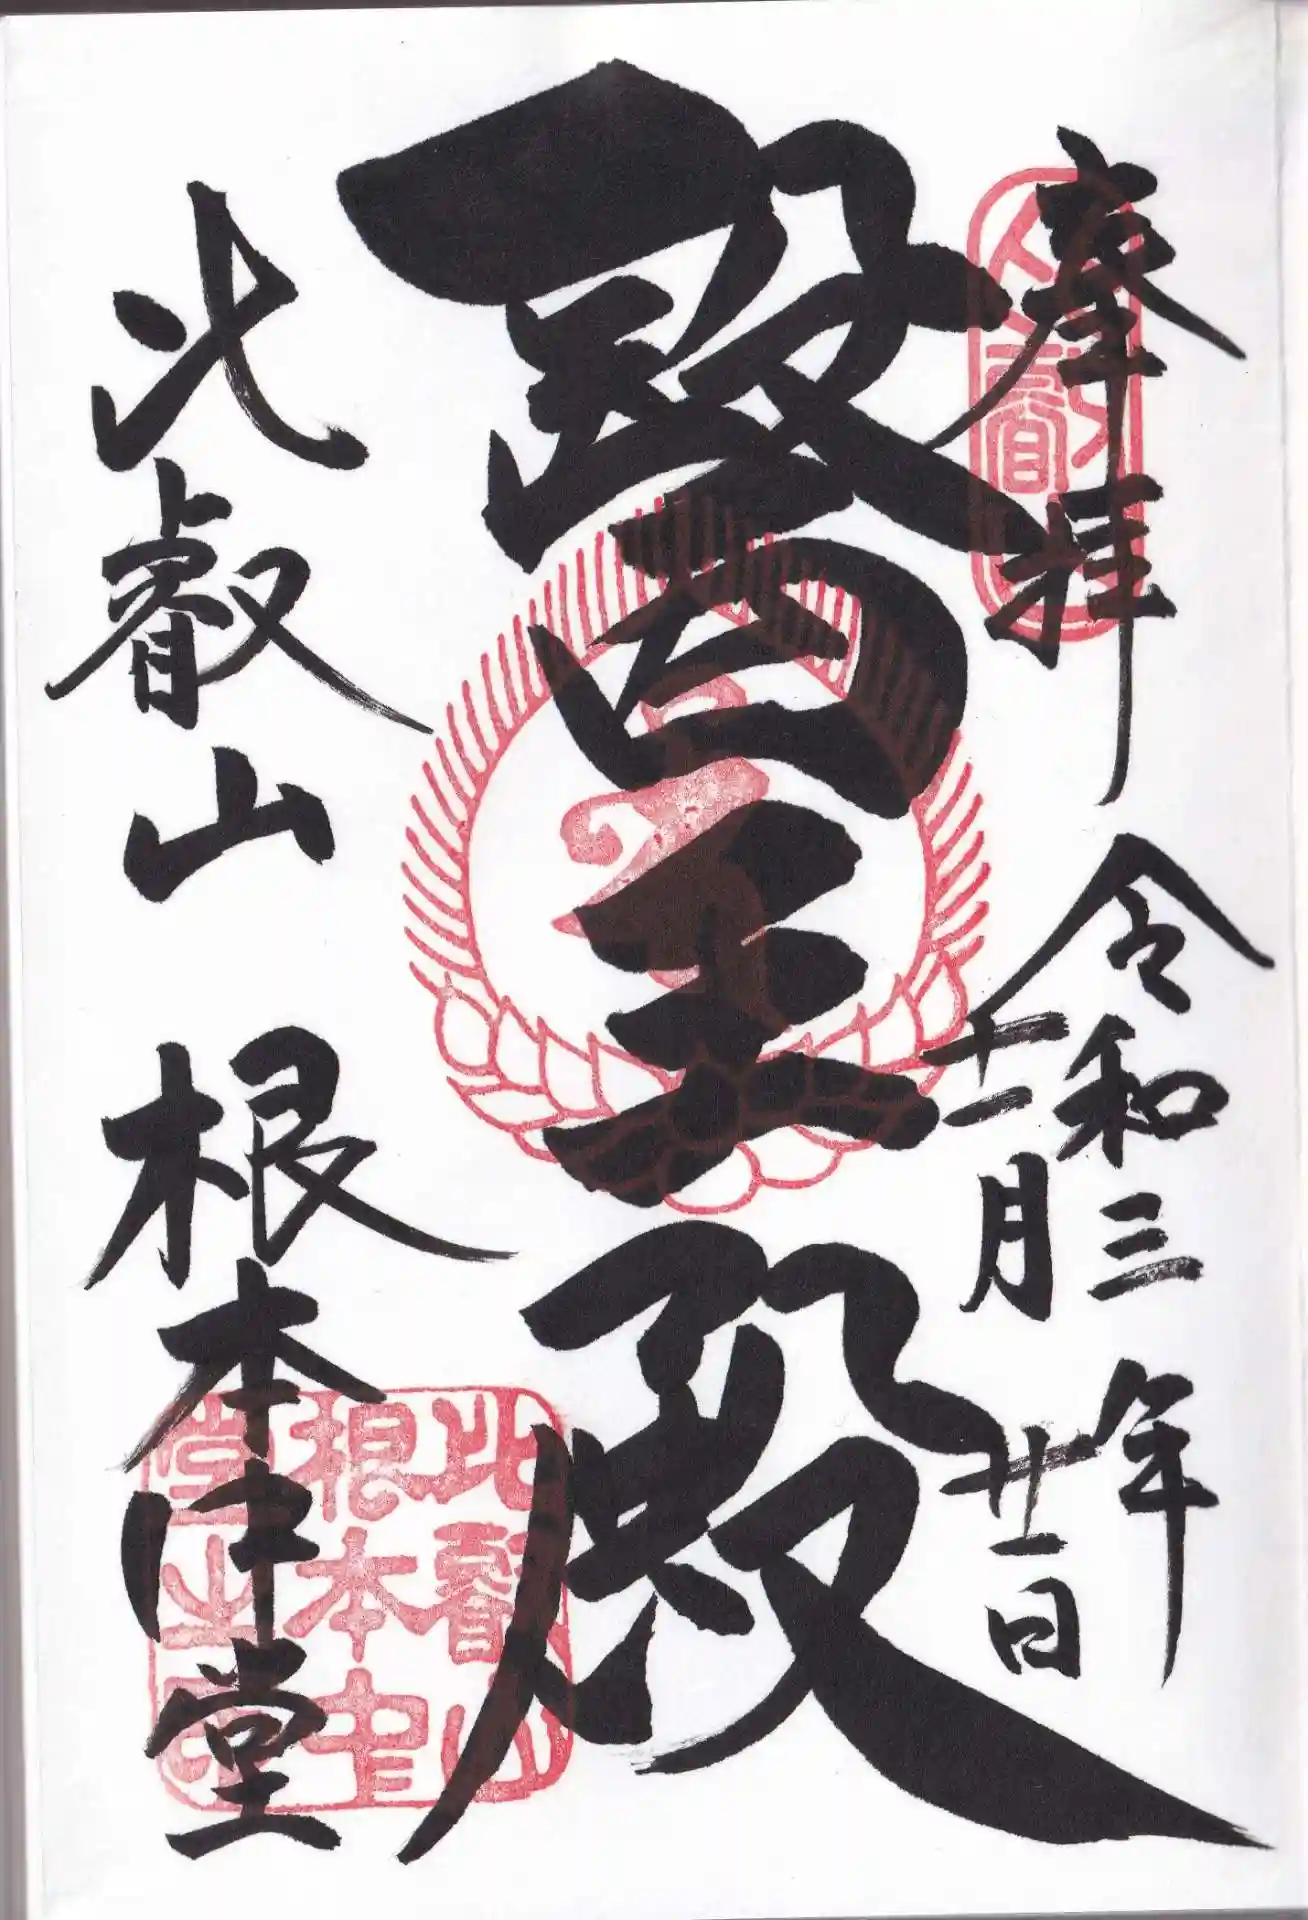 奉拝
令和三年
十一月廿一日
醫王殿
比叡山 根本中堂
比叡山
根本中
堂之印